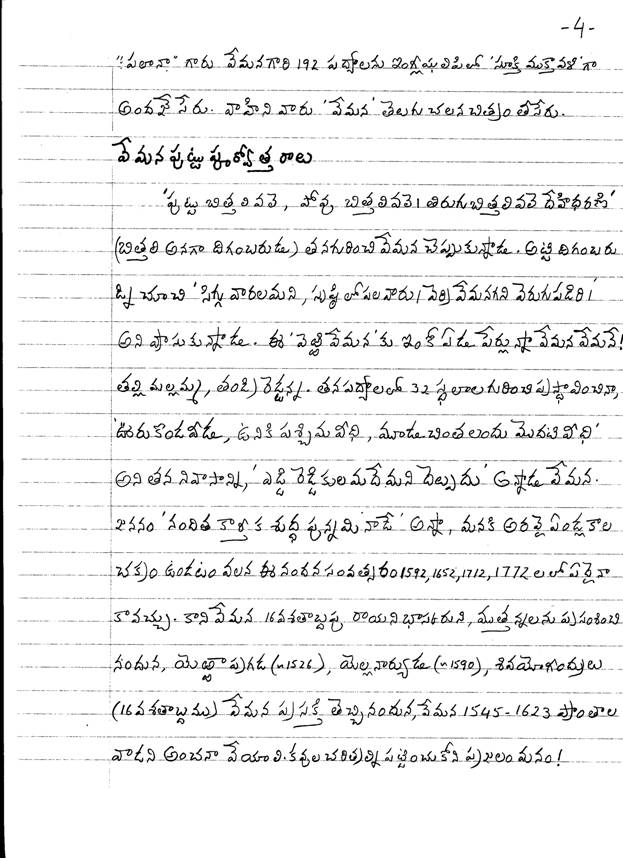 -4-
"పలానా" గారు వేమనగారి 192 పద్యాలను ఇంగ్లీషులిపిలో 'సూక్తి ముక్తావళి' గా
అందజేసేరు. వాహిని వారు 'వేమన' తెలుగు చలనచిత్రం తీసేరు.
వేమన పుట్టు పూర్వోత్తరాలు
'పుట్టు బిత్తలివలె, పోవు బిత్తలివలె। తిరుగు బిత్తలివలె దేహిధరణి'
(బిత్తలి అనగా దిగంబరుడు) తనగురించి వేమన చెప్పుకున్నాడు. అట్టి దిగంబరు
డ్ని చూచి 'సిగ్గు వారలమని, సుష్ఠి లోపలవారు। వెర్రి వేమనగని వెరుగుపడిరి।
అని వ్రాసుకున్నాడు. ఈ 'వెఱ్ఱివేమన' కు ఇంకే ఏడు పేర్లున్నా వేమన వేమనే!
తల్లి మల్లమ్మ, తండ్రి రెడ్డన్న. తనపద్యాలలో 32 స్థలాలగురించి ప్రస్థావించినా,
'ఊరుకొండవీడు, ఉనికి పశ్చిమవీధి, మూడుచింతలందు మొదటివీధి'
అని తన నివాసాన్ని, 'ఎడ్డి రెడ్డికులమదేమని దెల్పుదు' అన్నాడు వేమన.
జననం 'నందిత కార్తీక శుద్ధ పున్నమి నాడే' అన్నా, మనకి అరవై ఏండ్లకాల
చక్రం ఉండటం వలన ఈ నందన సంవత్సరం 1592, 1652, 1712, 1772 లలో ఏదైనా
కావచ్చు. కాని వేమన 16వశతాబ్దపు రాయనిభాస్కరుని, ముత్తన్నలను ప్రసంశించి
నందున, యెఱ్ఱాప్రగడ (~1526), యెల్లనార్యుడు (~1590), శివయోగీంద్రులు
(16వశతాబ్దము) వేమన ప్రసక్తి తెచ్చినందున, వేమన 1545-1623 ప్రాంతాల
వాడని అంచనా వేయాలి. కవుల చరిత్రల్ని పట్టించుకోని ప్రజలం మనం!